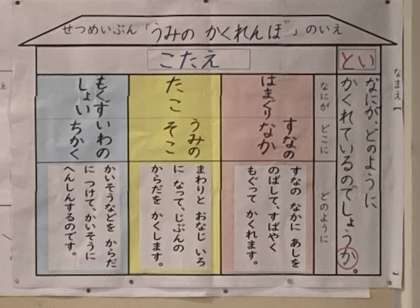 せつめいぶん「うみの かくれんぼ」のいえ
なまえ
とい
なにが、どのように
かくれているのでしょうか。
こたえ
なにが
どこに
どのように
はまぐり
すなの
なか
すなの なかに あしを
のばして、すばやく
もぐって かくれます。
たこ
うみの
そこ
まわりと おなじ いろ
に なって、じぶんの
からだを かくします。
もくずしょい
いわの
ちかく
かいそうなどを からだ
に つけて、かいそうに
へんしんするのです。